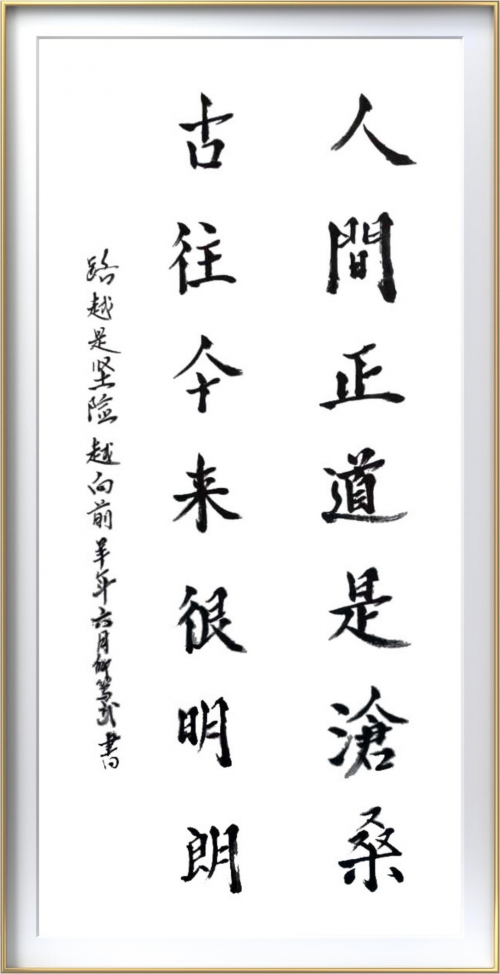 人間正道是滄桑
古往今来很明朗
路越是坚险越向前羊年六月 書